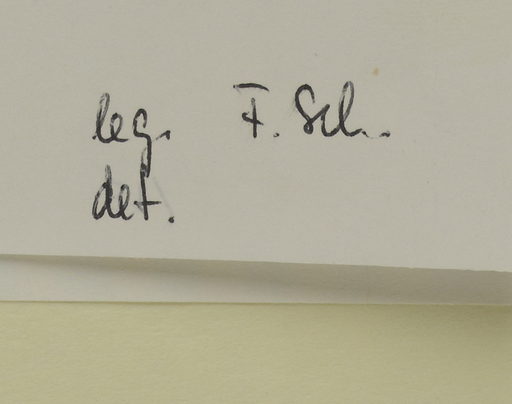 leg. F. Sch.
det.